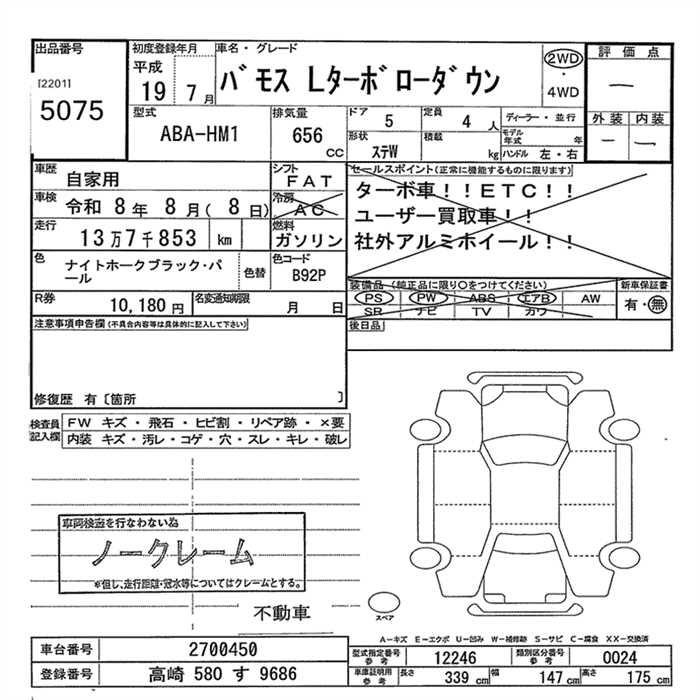 出品番号
[2201]
5075
初度登録年月
平成
19 7月
車名・グレード
バモス Lターボローダウン
2WD
・
4WD
評価点
―
外装 内装
― ―
型式
ABA-HM1
排気量
656
cc
ドア 5
定員 4 人
ディーラー・並行
形状 ステW
積載 kg
モデル年式 年
ハンドル 左・右
車歴
自家用
シフト
FAT
車検
令和 8年 8月( 8日)
冷房
AC
走行
13万7千853 km
燃料
ガソリン
色
ナイトホークブラック・パール
色替
色コード
B92P
R券
10,180円
名変通知期限
月 日
セールスポイント(正常に機能するものに限ります)
ターボ車!!ETC!!
ユーザー買取車!!
社外アルミホイール!!
装備品(純正品に限り○をつけてください)
PS PW ABS エアB AW
SR ナビ TV カワ
新車保証書
有・無
後日品
注意事項申告欄(不具合内容等は具体的に記入して下さい)
修復歴 有〔箇所 〕
検査員
記入欄
FW キズ・飛石・ヒビ割・リペア跡・×要
内装 キズ・汚レ・コゲ・穴・スレ・キレ・破レ
車両検査を行なわない為
ノークレーム
*但し、走行距離・冠水等についてはクレームとする。
不動車
スペア
A-キズ E-エクボ U-凹み W-補修跡 S-サビ C-腐食 XX-交換済
車台番号
2700450
登録番号
高崎 580 す 9686
型式指定番号
参考
12246
類別区分番号
参考
0024
車庫証明用
参考
長さ 339 cm
幅 147 cm
高さ 175 cm